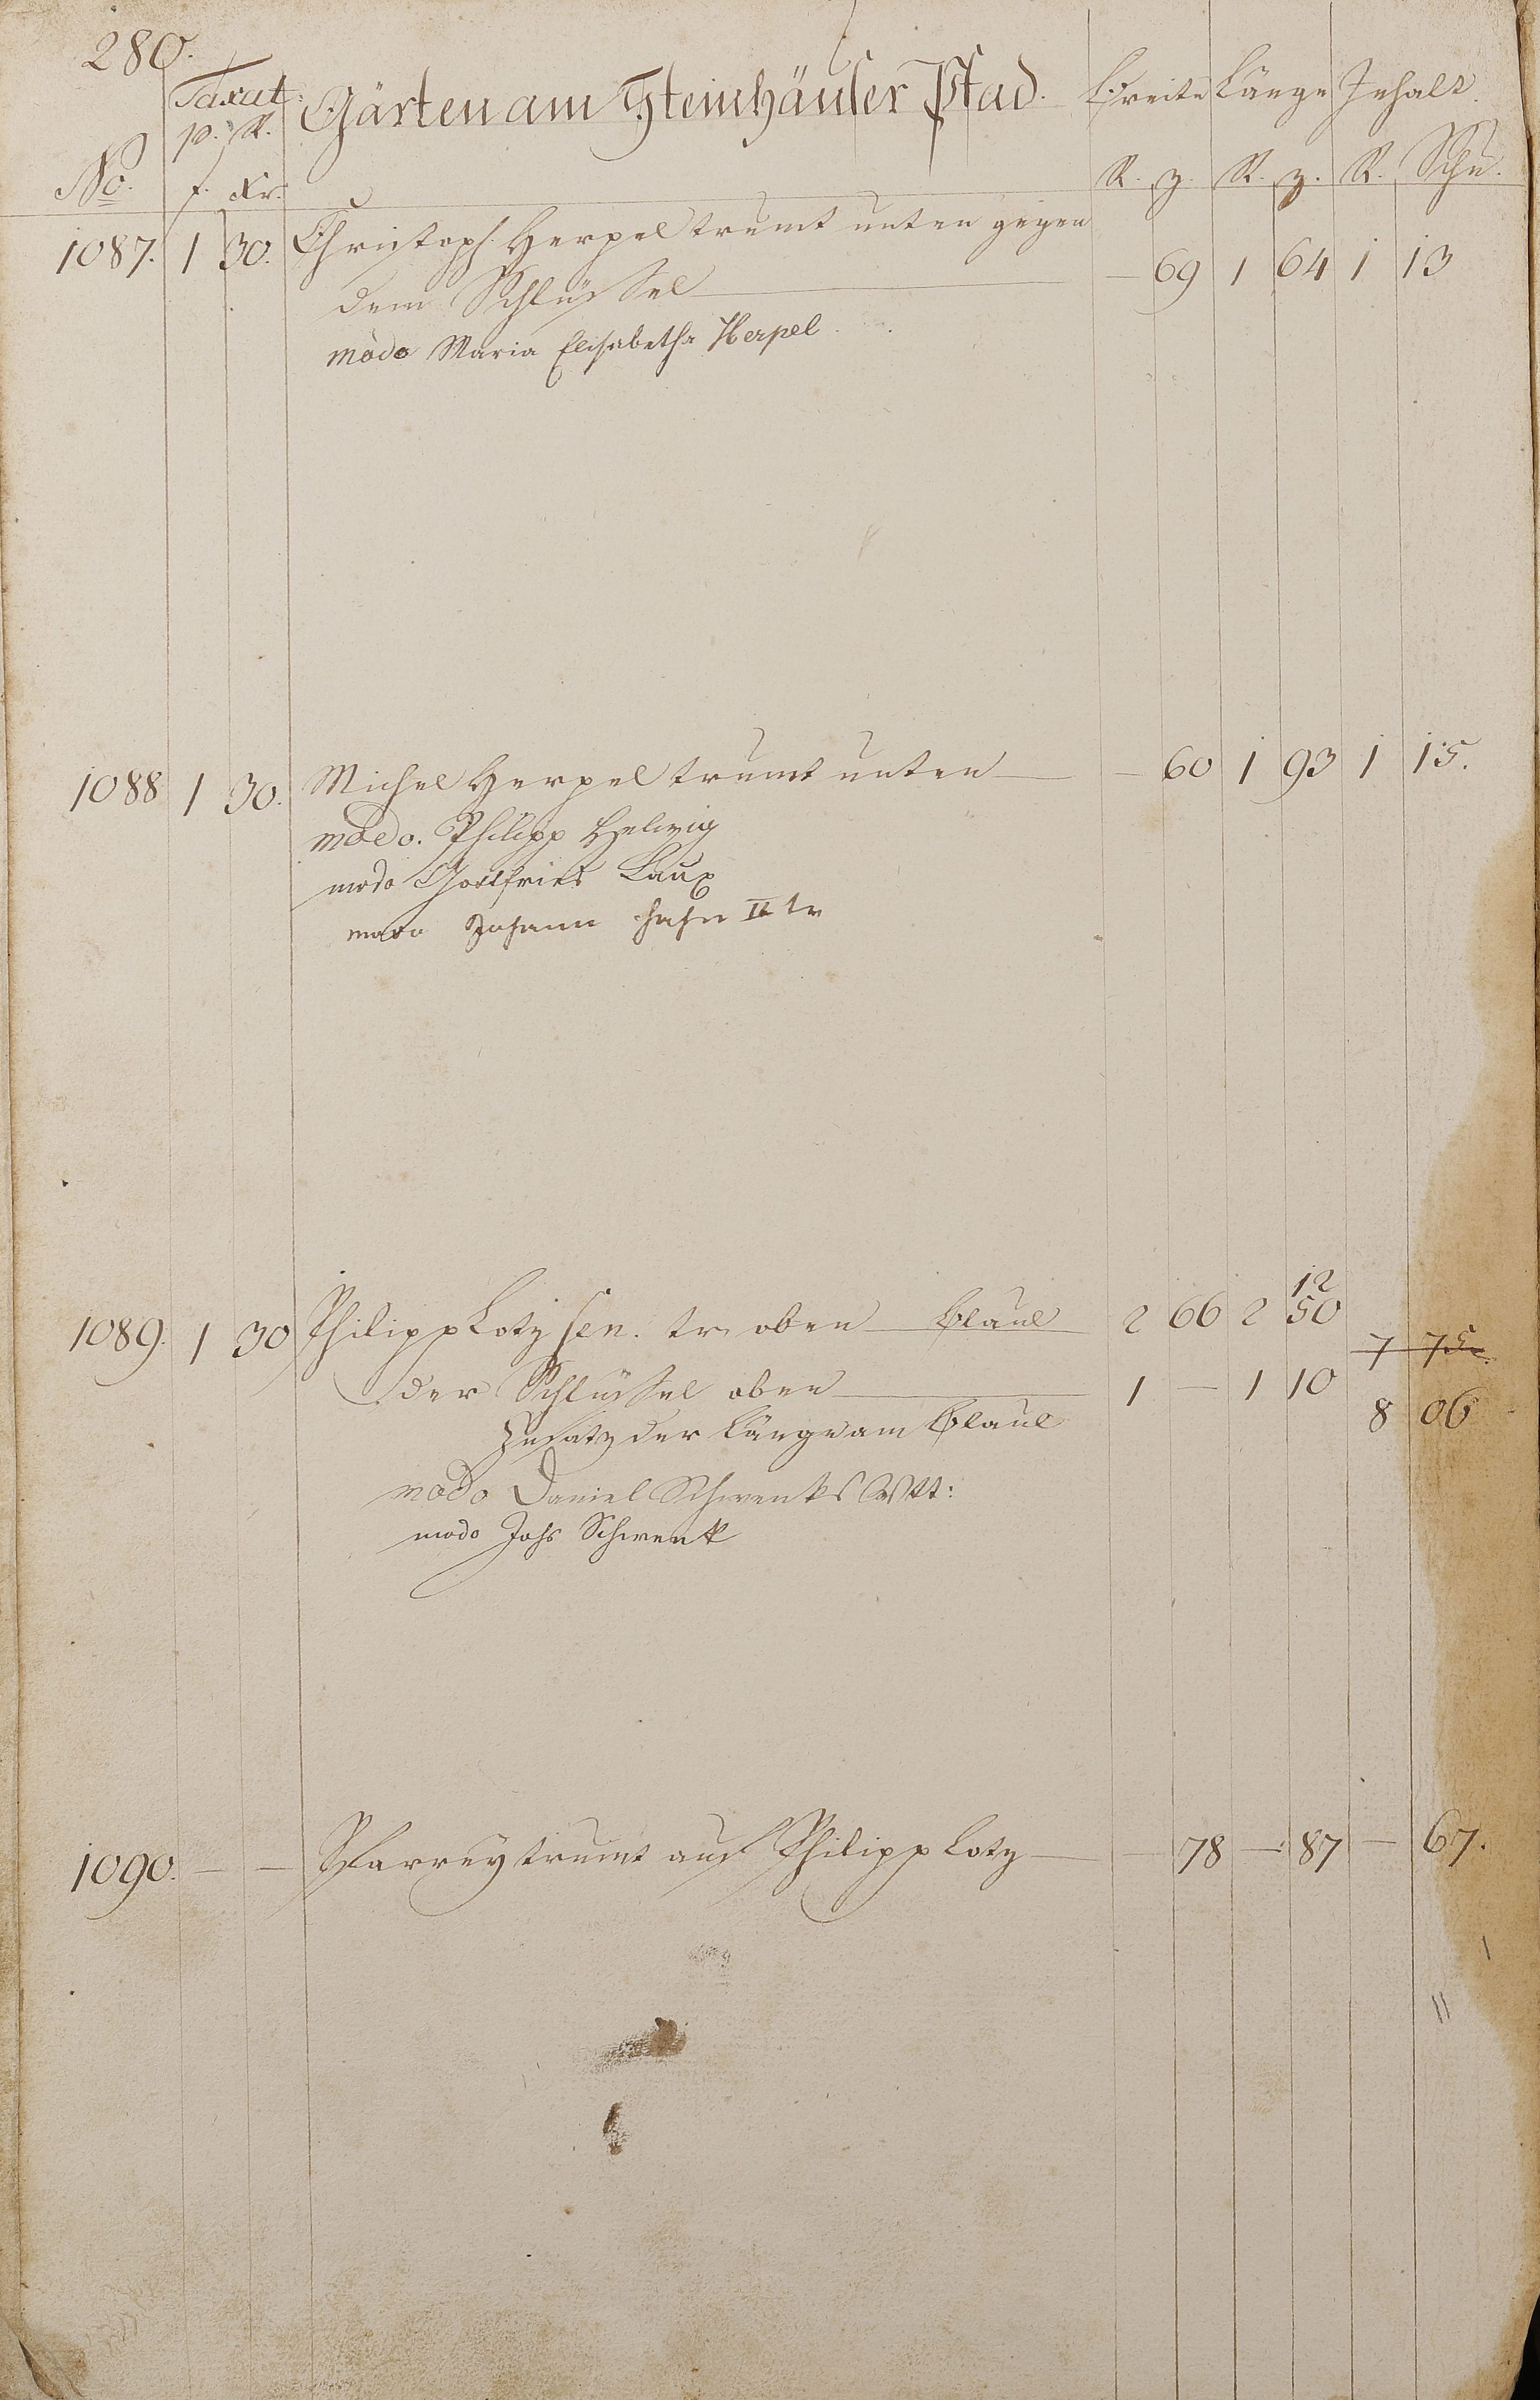 280.
Taxat: Gärten am Steinhäuser Pfad. Breite Länge Inhalt.
p. R.
No. f. Xr. R. z. R. z. R. Schu.
1087. 1 30. Christoph Herpel trumt unten gegen
dem Schlüssel — — 69 1 64 1 13
modo Maria Elisabetha Herpel
1088 1 30. Michel Herpel trumt unten — — 60 1 93 1 15.
modo. Philipp Helwig
modo Gottfried Laux
modo Johann Hahn II tr
12
1089. 1 30 Philipp Lotz sen. tr. oben — blaul 2 66 2 50
7 75.
der Schlüssel oben — 1 — 1 10
8 06
Zusatz der Länge am blaul
modo Daniel Schwenks Witt:
modo Johs Schwenk
1090. — — Pfarrey trumt auf Philipp Lotz — — 78 — 87 — 67.